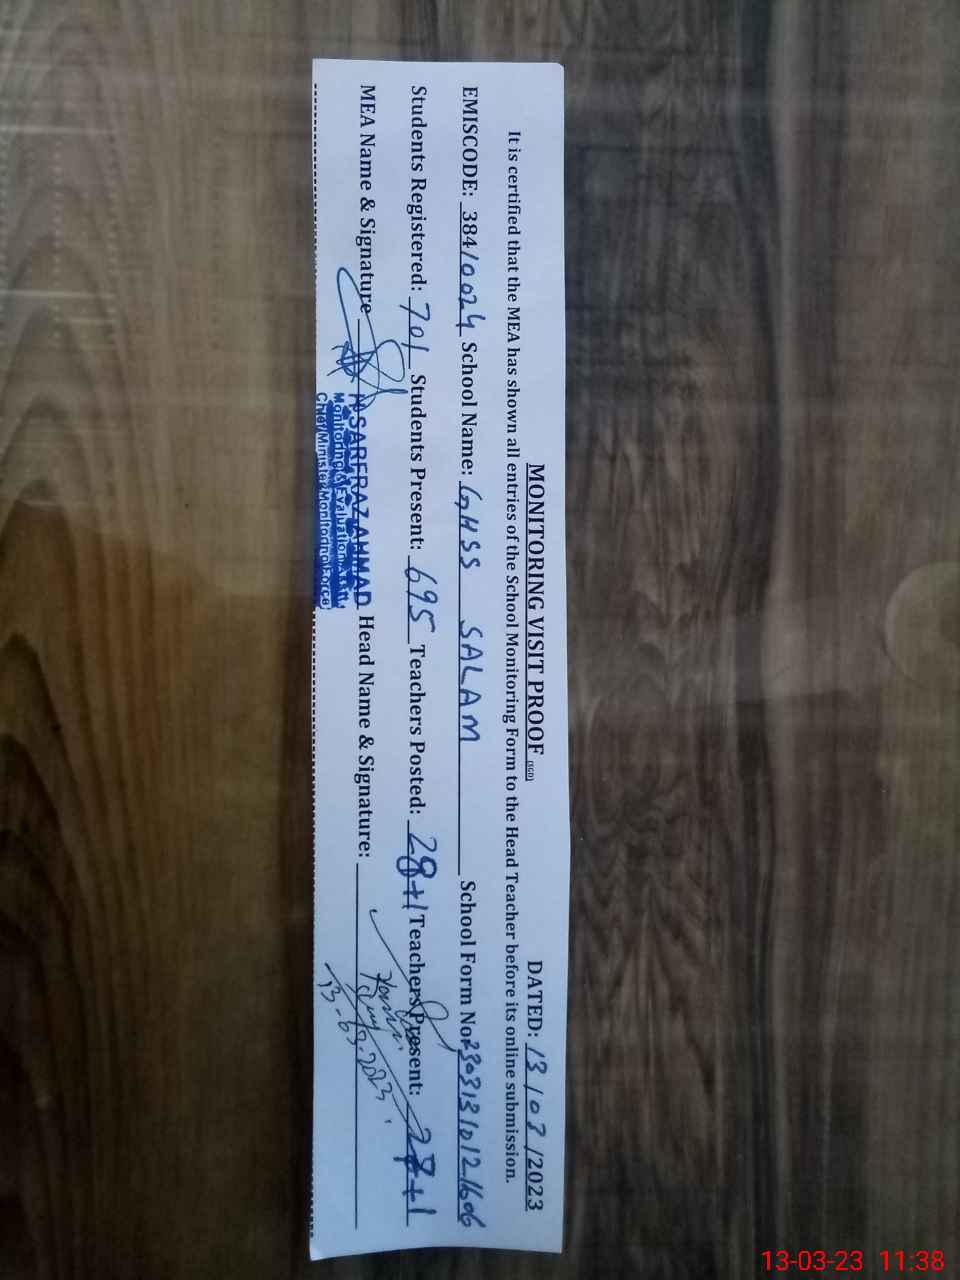 MONITORING VISIT PROOF (SGD) DATED: 13/03/2023
It is certified that the MEA has shown all entries of the School Monitoring Form to the Head Teacher before its online submission.
EMISCODE: 38410024 School Name: GHSS SALAM School Form No: 23031310121606
Students Registered: 701 Students Present: 695 Teachers Posted: 28+1 Teachers Present: 28+1
MEA Name & Signature SARFRAZ AHMAD Head Name & Signature:
Monitoring & Evaluation Asstt.
Chief Minister Monitoring Force
13.03.2023
13-03-23 11:38